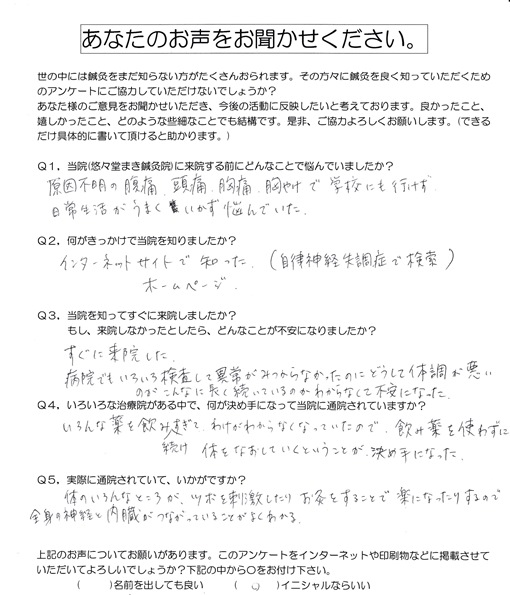 あなたのお声をお聞かせください。
世の中には鍼灸をまだ知らない方がたくさんおられます。その方々に鍼灸を良く知っていただくため
のアンケートにご協力していただけないでしょうか？
あなた様のご意見をお聞かせいただき、今後の活動に反映したいと考えております。良かったこと、
嬉しかったこと、どのような些細なことでも結構です。是非、ご協力よろしくお願いします。（できる
だけ具体的に書いて頂けると助かります。）
Ｑ１．当院（悠々堂まき鍼灸院）に来院する前にどんなことで悩んでいましたか？
原因不明の腹痛、頭痛、胸痛、胸やけで学校にも行けず
日常生活がうまくいかず悩んでいた。
Ｑ２．何がきっかけで当院を知りましたか？
インターネットサイトで知った。（自律神経失調症で検索）
ホームページ．
Ｑ３．当院を知ってすぐに来院しましたか？
もし、来院しなかったとしたら、どんなことが不安になりましたか？
すぐに来院した。
病院でもいろいろ検査して異常がみつからなかったのにどうして体調が悪い
のがこんなに長く続いているのかわからなくて不安になった。
Ｑ４．いろいろな治療院がある中で、何が決め手になって当院に通院されていますか？
いろんな薬を飲み続けわけがわからなくなっていたので、飲み薬を使わずに
体をなおしていくということが、決め手になった。
Ｑ５．実際に通院されていて、いかがですか？
体のいろんなところが、ツボを刺激したりお灸をすることで楽になったりするので
全身の神経と内臓がつながっていることがよくわかる。
上記のお声についてお願いがあります。このアンケートをインターネットや印刷物などに掲載させて
いただいてよろしいでしょうか？下記の中から○をお付け下さい。
（　　）名前を出しても良い　　（ ○ ）イニシャルならいい